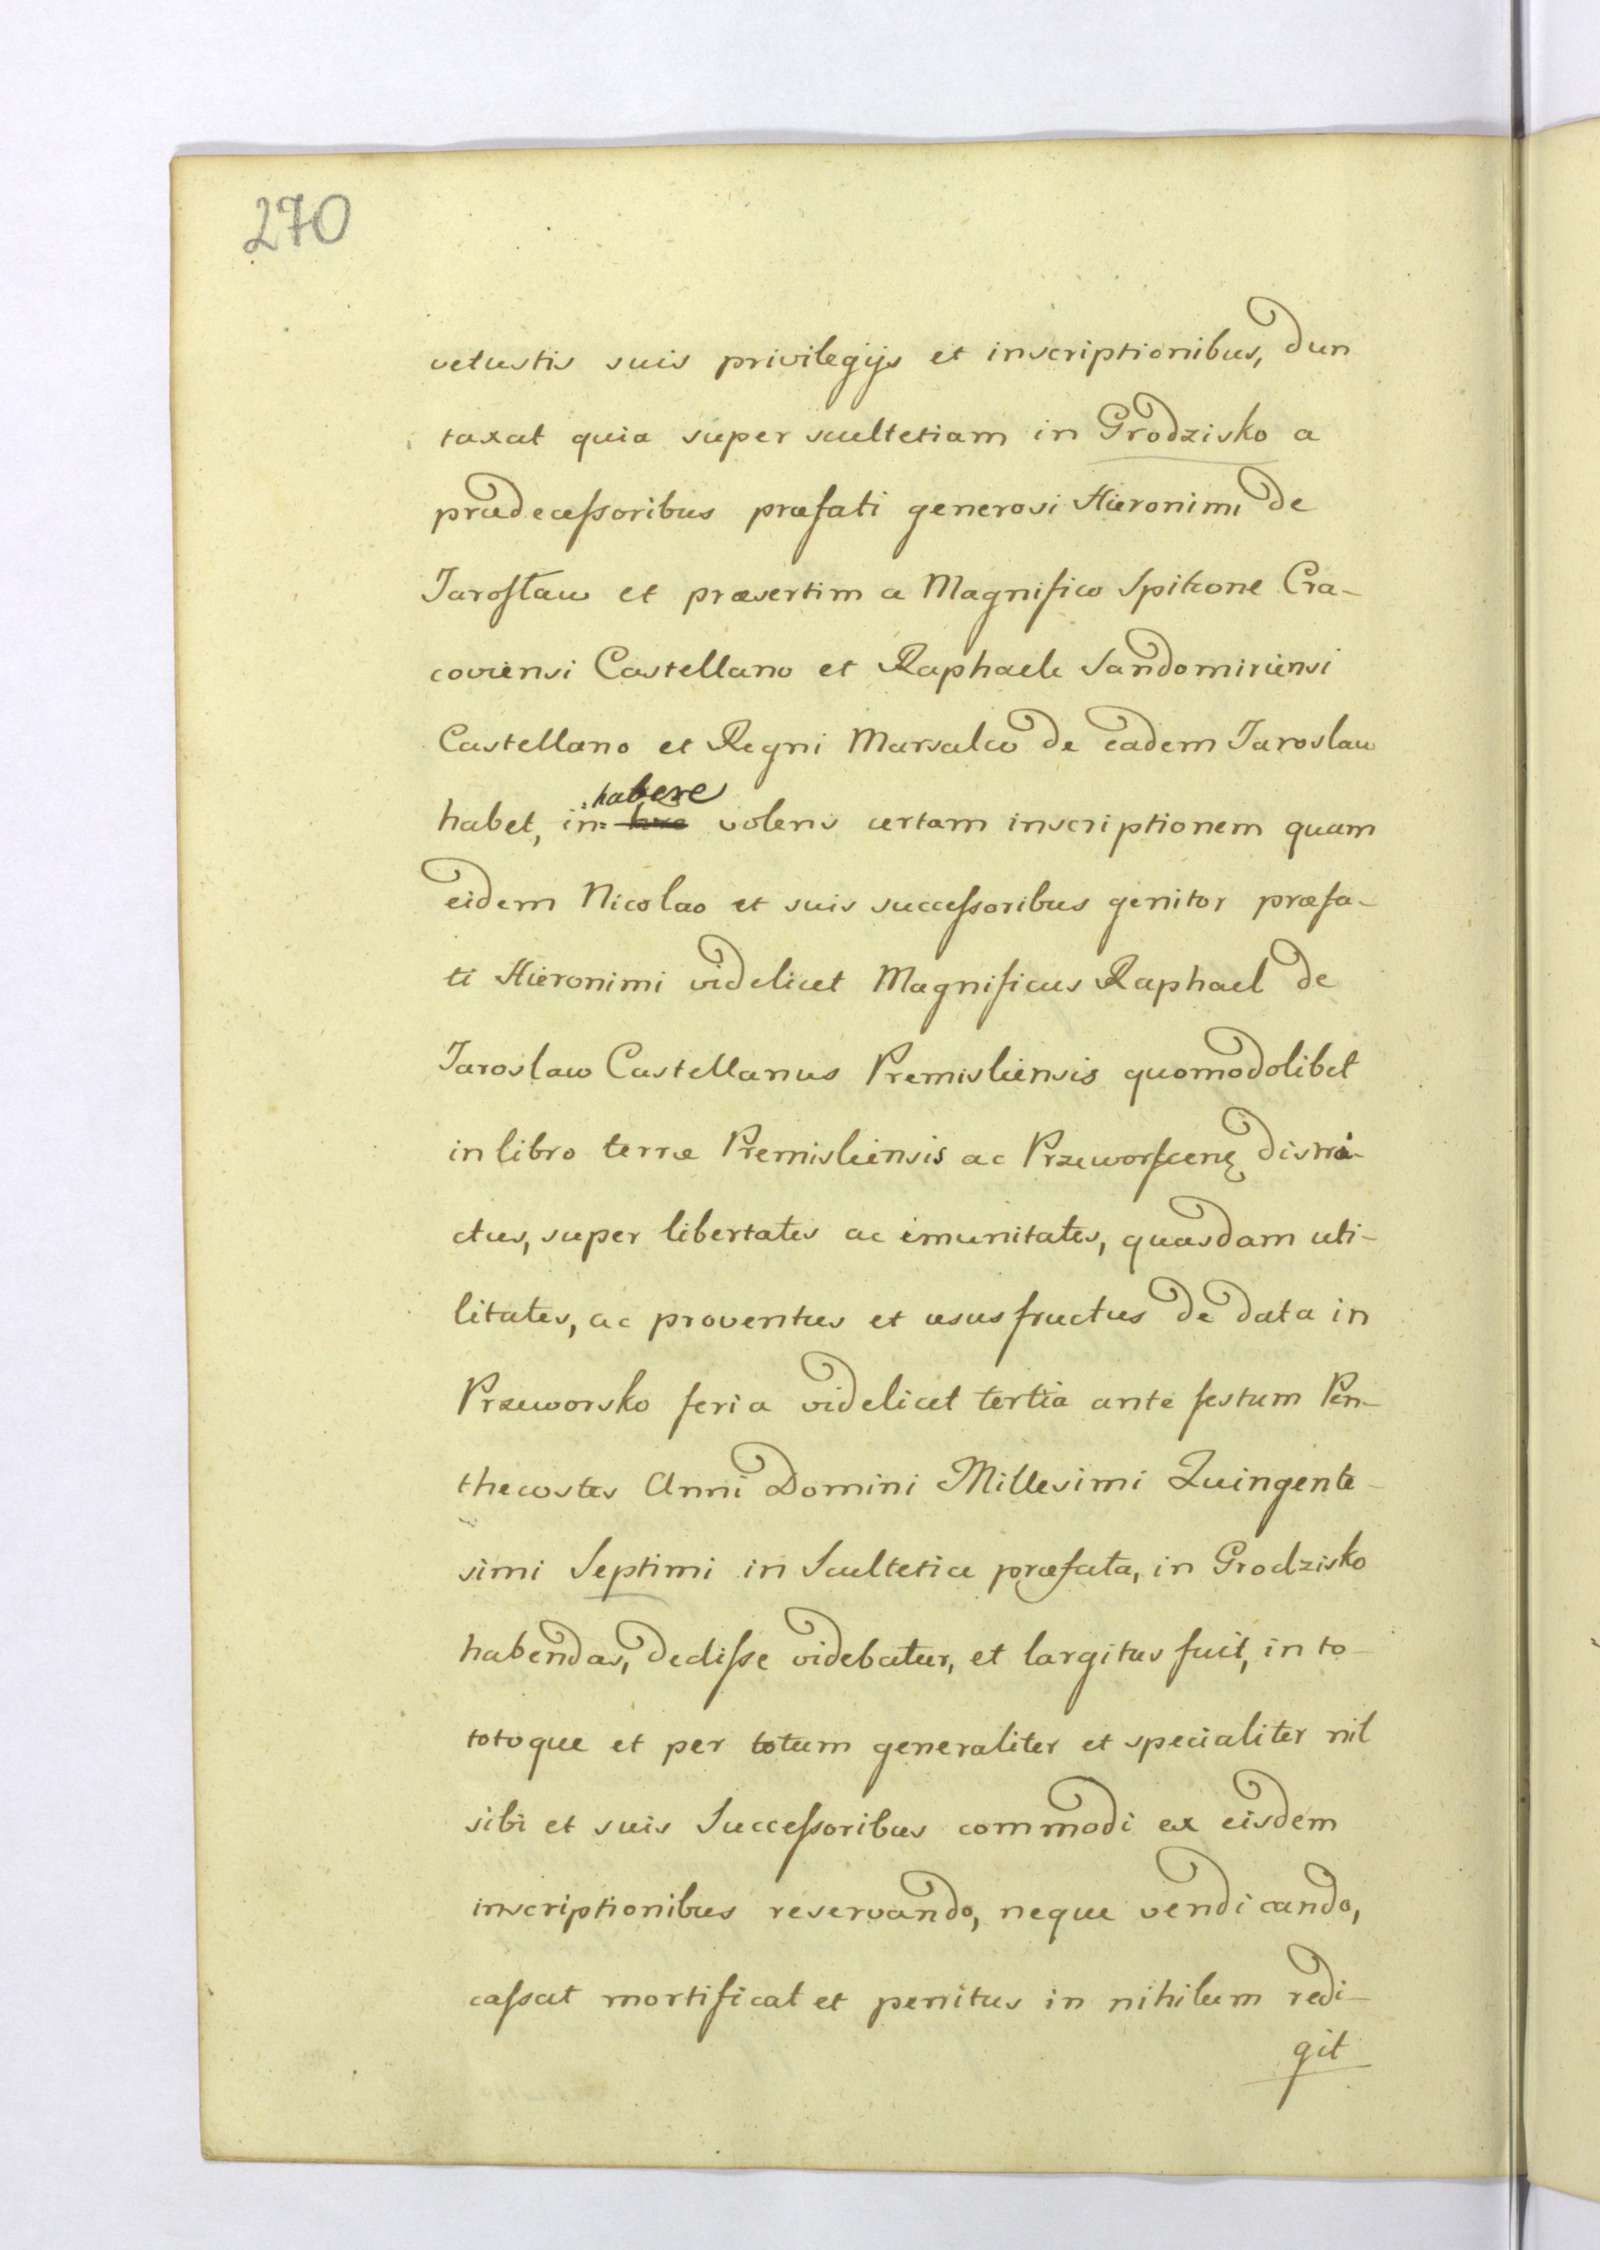 270
vetustis suis privilegijs et inscriptionibus, dun
taxat quia super scultetiam in Grodzisko a
prædecessoribus præfati generosi Hieronimi de
Jarosław et præsertim a Magnifico Spitcone Cra-
coviensi Castellano et Raphaele Sandomiriensi
Castellano et Regni Marsalco de eadem Jaroslaw
habere
habet, in: hre volens certam inscriptionem quam
eidem Nicolao et suis successoribus genitor præfa-
ti Hieronimi videlicet Magnificus Raphael de
Jaroslaw Castellanus Premisliensis quomodolibet
in libro terræ Premisliensis ac Przeworscenę distri-
ctus, super libertates ac imunitates, quasdam uti-
litates, ac proventus et ususfructus de data in
Przeworsko feria videlicet tertia ante festum Pen-
thecostes Anni Domini Millesimi Quingente-
simi Septimi in Scultetia præfata, in Grodzisko
habendas, dedisse videbatur, et largitus fuit, in to-
totoque et per totum generaliter et specialiter nil
sibi et suis Successoribus commodi ex eisdem
inscriptionibus reservando, neque vendicando,
cassat mortificat et penitus in nihilum redi-
git